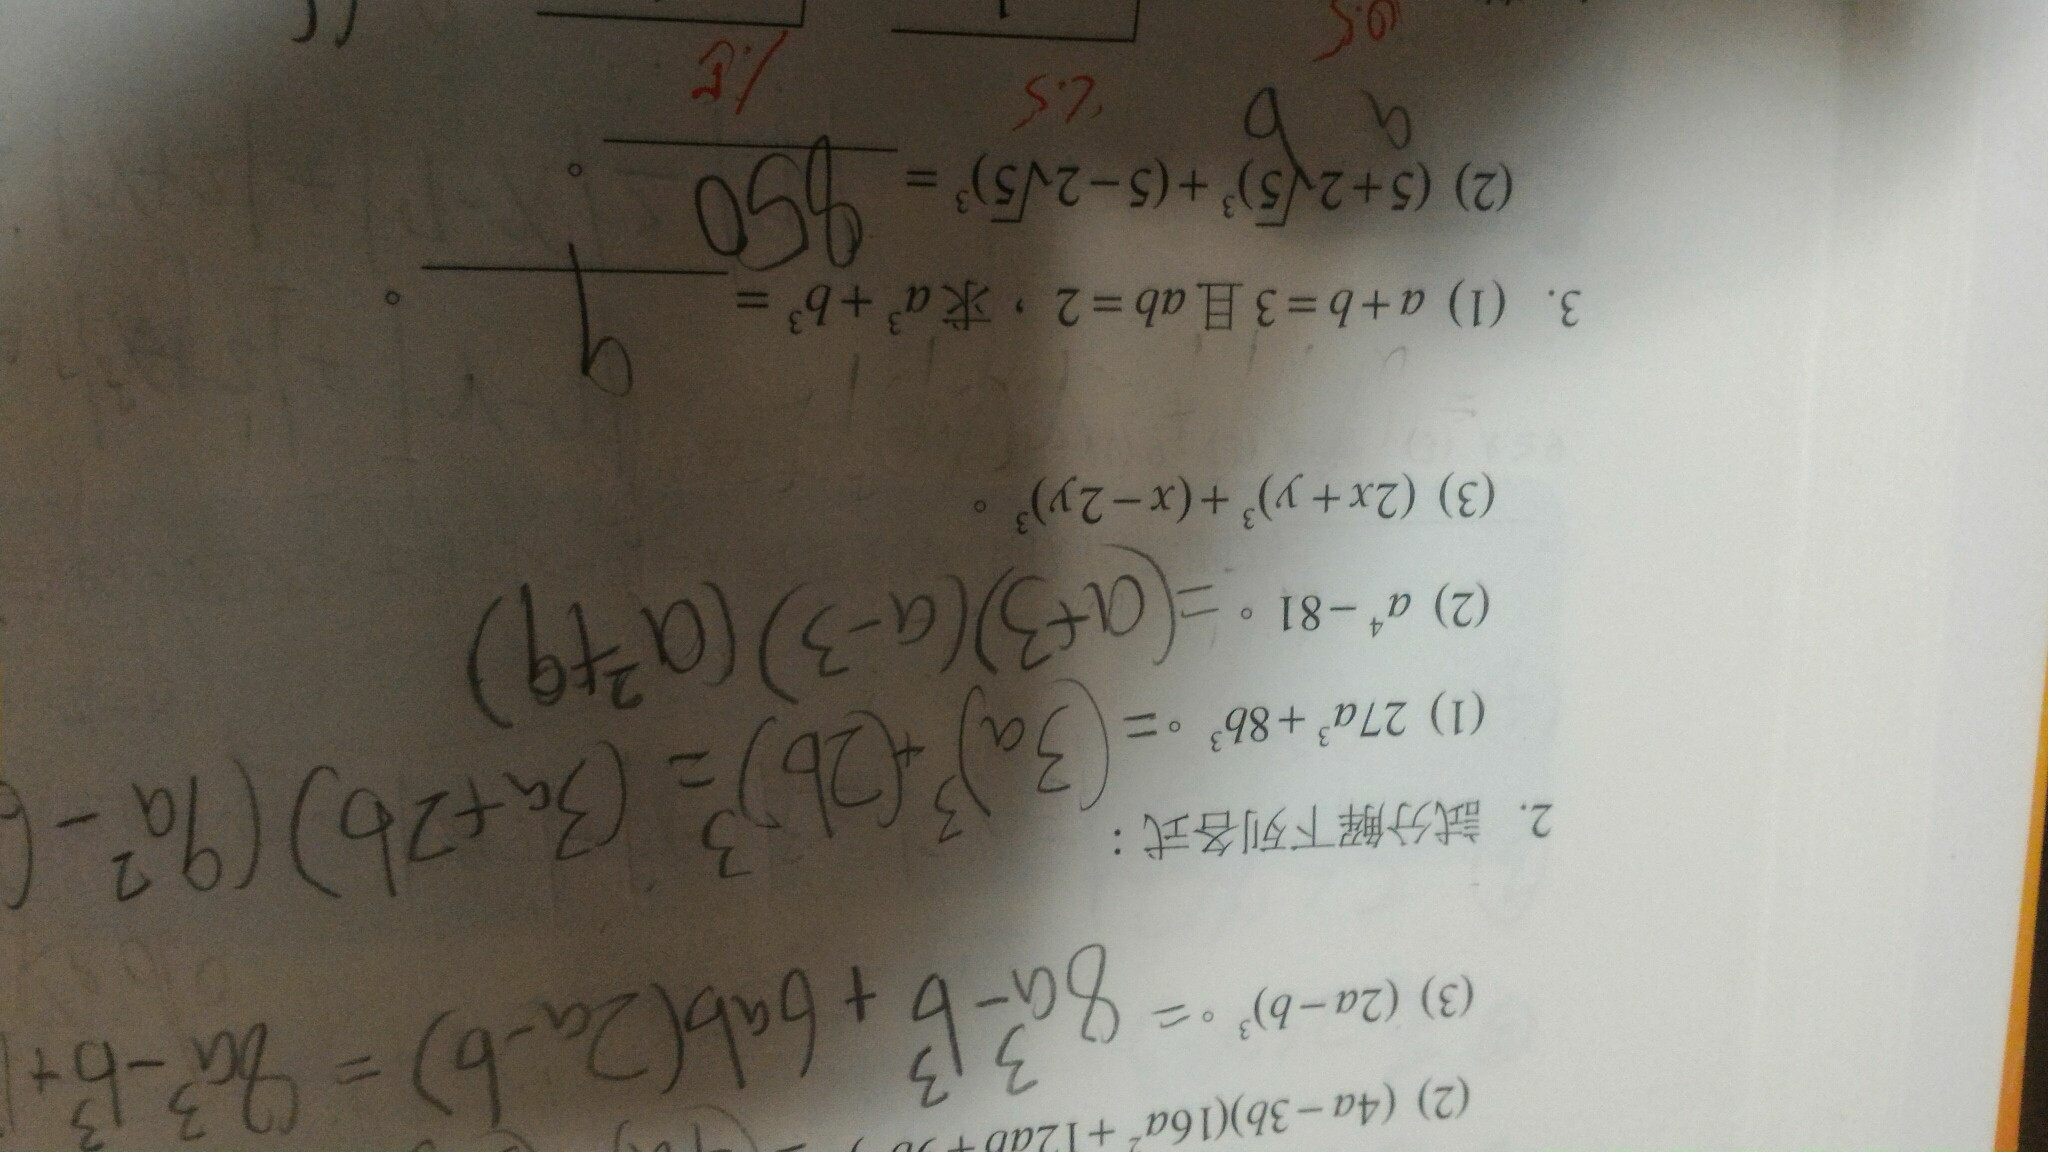 (2) (4a−3b)(16a²+12ab+9b
(3) (2a−b)³。= 8a³−b³+6ab(2a−b) = 8a³−b³+
2. 試分解下列各式：
(1) 27a³+8b³。=(3a)³+(2b)³=(3a+2b)(9a²−
(2) a⁴−81。=(a+3)(a−3)(a²+9)
(3) (2x+y)³+(x−2y)³。
3. (1) a+b=3且ab=2，求a³+b³= 9 。
(2) (5+2√5)³+(5−2√5)³= 850 。
a b